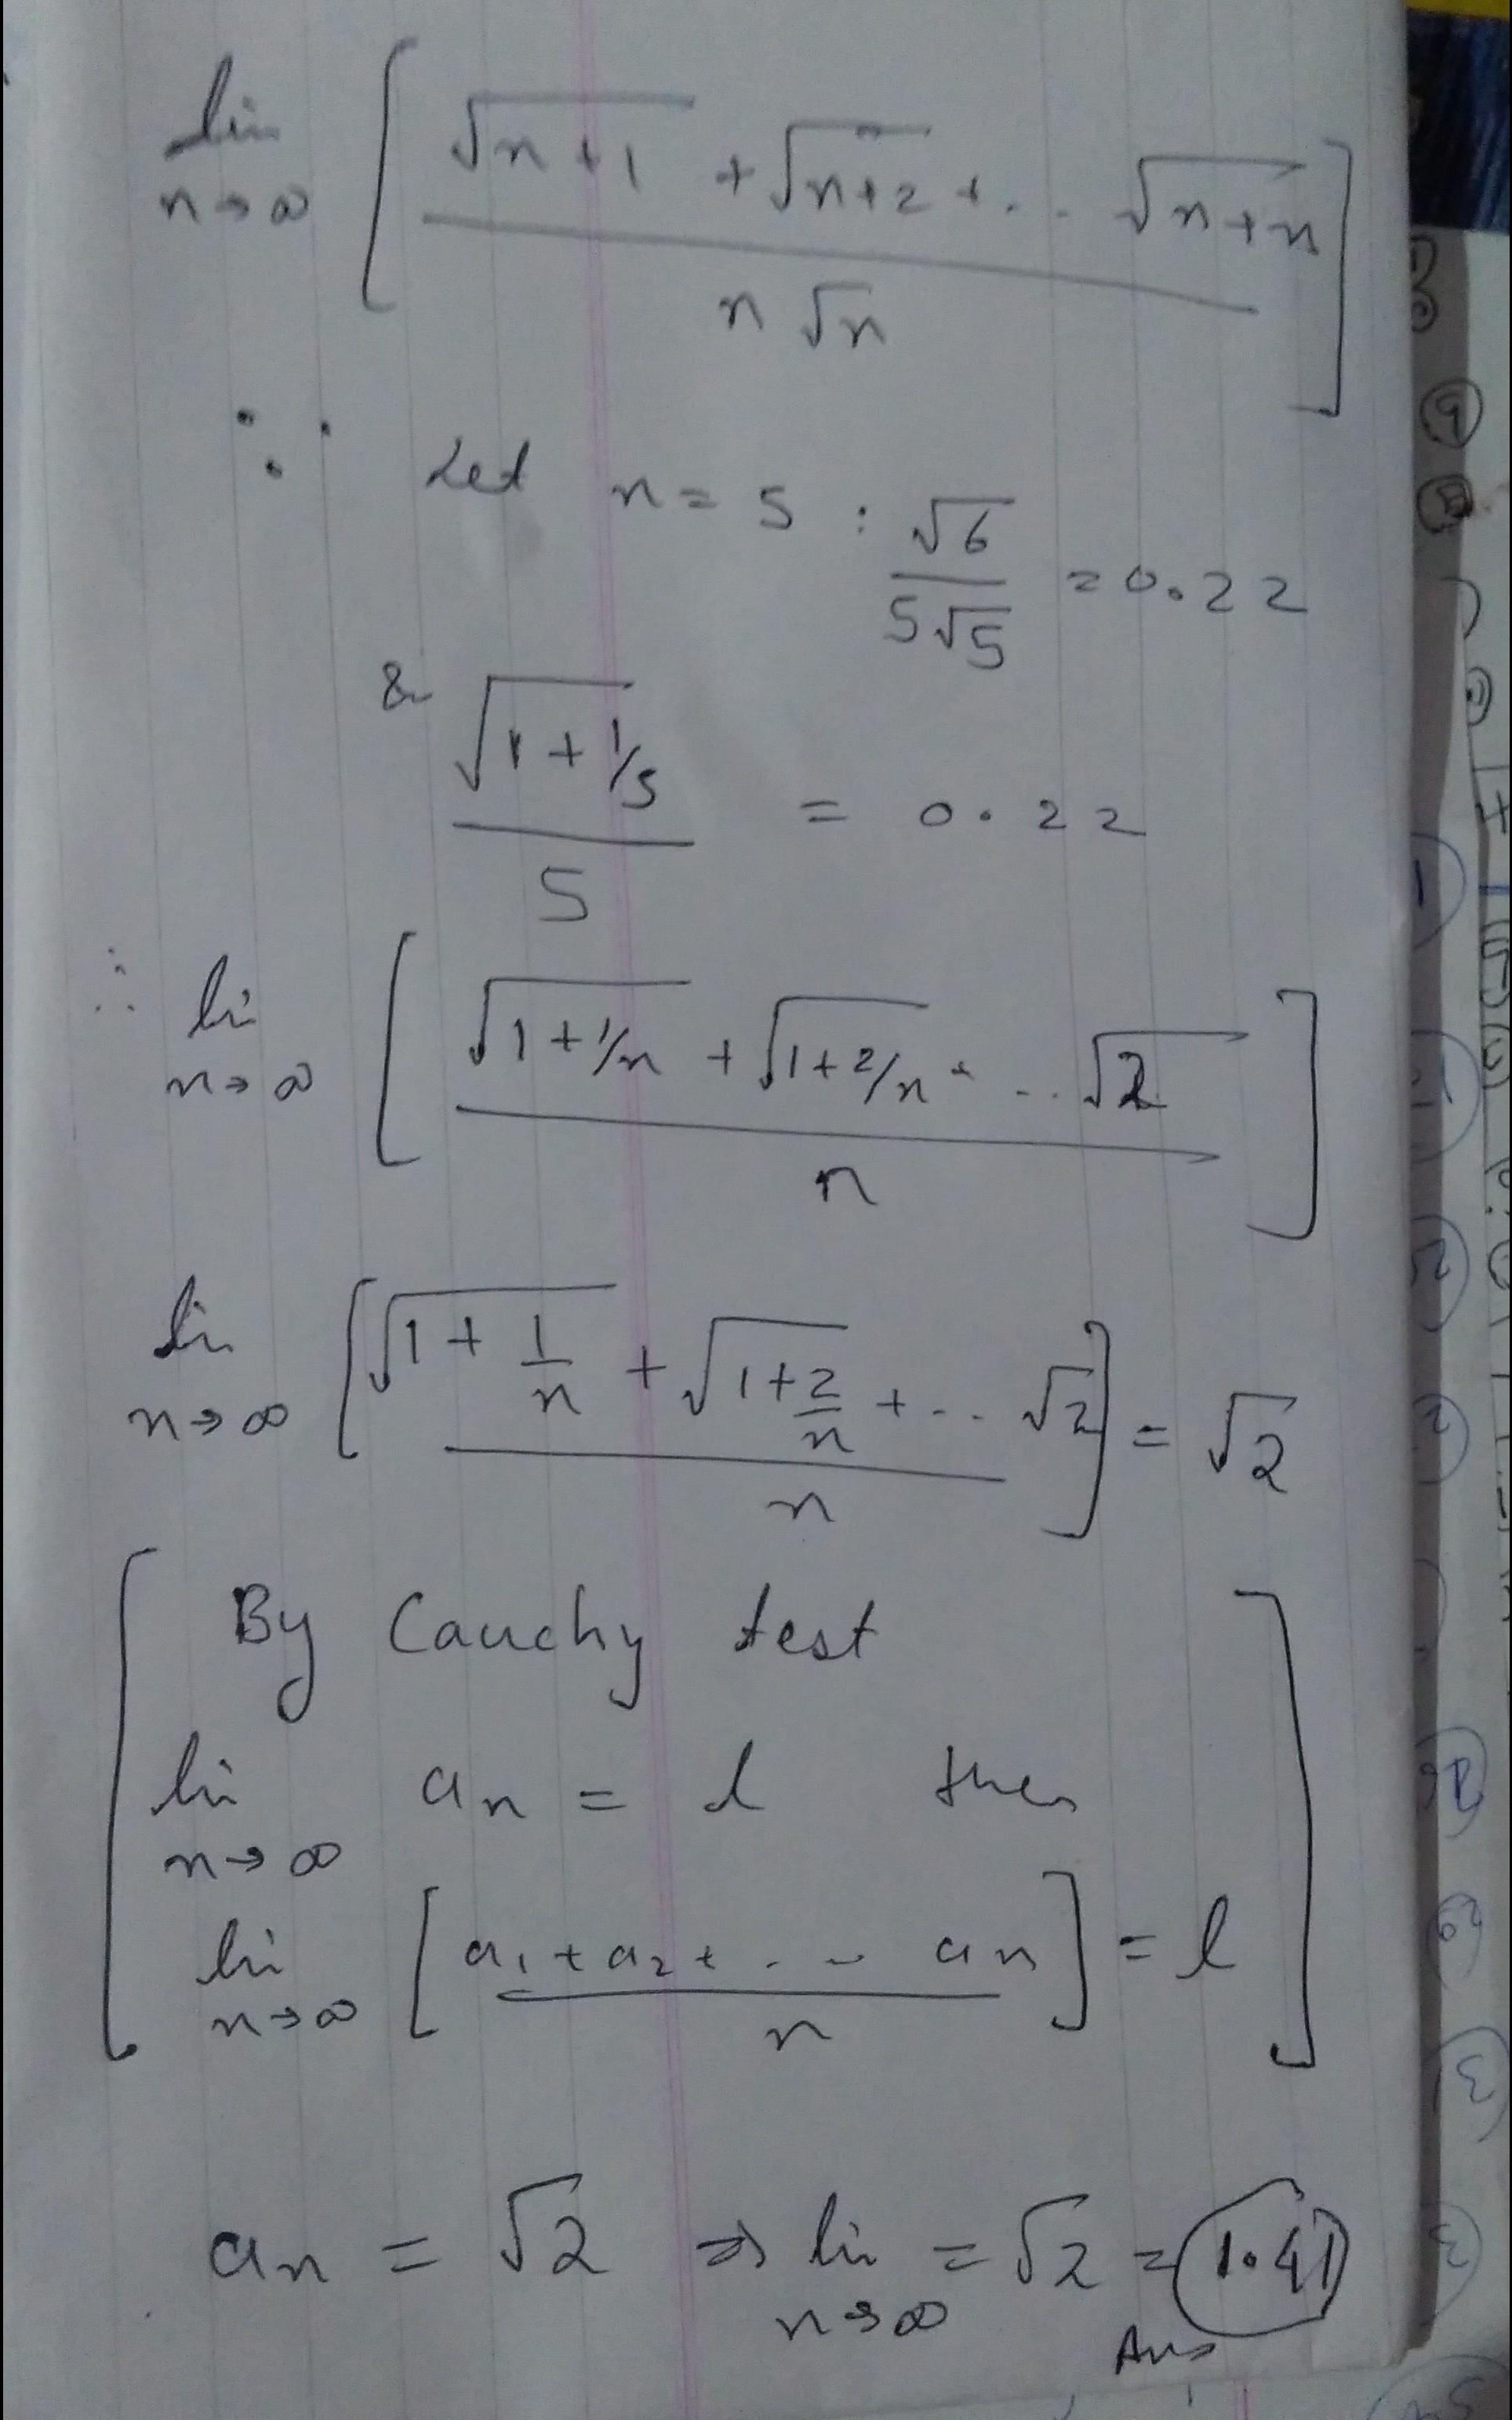 lim n→∞ [ (√(n+1) + √(n+2) + .. √(n+n)) / (n√n) ]
∵ Let n = 5 : √6 / (5√5) = 0.22
& √(1 + 1/5) / 5 = 0.22
∴ lim n→∞ [ (√(1+1/n) + √(1+2/n) + ... √2) / n ]
lim n→∞ [ (√(1+1/n) + √(1+2/n) + ... √2) / n ] = √2
By Cauchy test
lim n→∞ an = l then
lim n→∞ [ (a1 + a2 + ... an) / n ] = l
an = √2 ⇒ lim n→∞ = √2 = 1.41
Ans